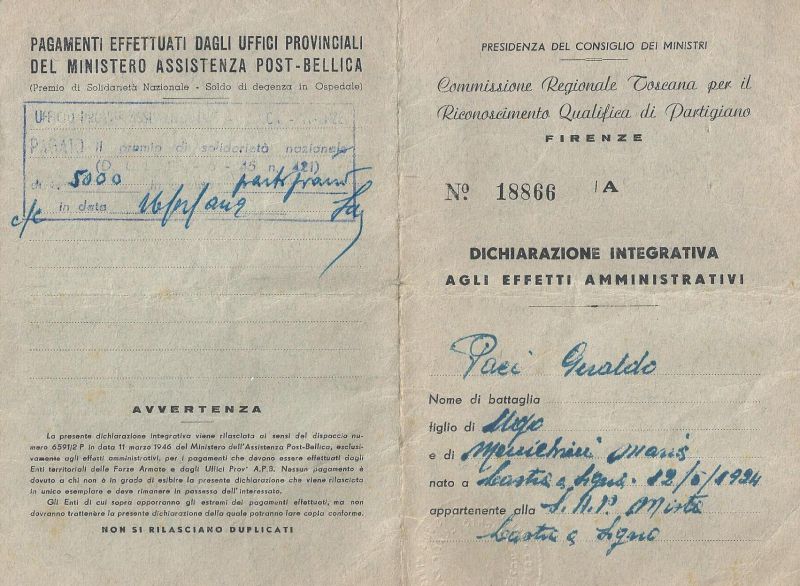 PAGAMENTI EFFETTUATI DAGLI UFFICI PROVINCIALI
DEL MINISTERO ASSISTENZA POST-BELLICA
(Premio di Solidarietà Nazionale - Soldo di degenza in Ospedale)
PAGATO il premio di solidarietà nazionale
di 5000
in data
AVVERTENZA
La presente dichiarazione integrativa viene rilasciata ai sensi del dispaccio nu-
mero 6591/2 P in data 11 marzo 1946 del Ministero dell'Assistenza Post-Bellica, esclusi-
vamente agli effetti amministrativi, per i pagamenti che devono essere effettuati dagli
Enti territoriali delle Forze Armate e dagli Uffici Prov' A.P.B. Nessun pagamento è
dovuto a chi non è in grado di esibire la presente dichiarazione che viene rilasciata
in unico esemplare e deve rimanere in possesso dell'interessato.
Gli Enti di cui sopra apporranno gli estremi dei pagamenti effettuati, ma non
dovranno trattenère la presente dichiarazione della quale potranno fare copia conforme.
NON SI RILASCIANO DUPLICATI
PRESIDENZA DEL CONSIGLIO DEI MINISTRI
Commissione Regionale Toscana per il
Riconoscimento Qualifica di Partigiano
FIRENZE
No. 18866 /A
DICHIARAZIONE INTEGRATIVA
AGLI EFFETTI AMMINISTRATIVI
Paci Geraldo
Nome di battaglia
figlio di Ugo
e di Menichini Maria
nato a Lastra a Signa 12/5/1924
appartenente alla S.A.P. Mista
Lastra a Signa